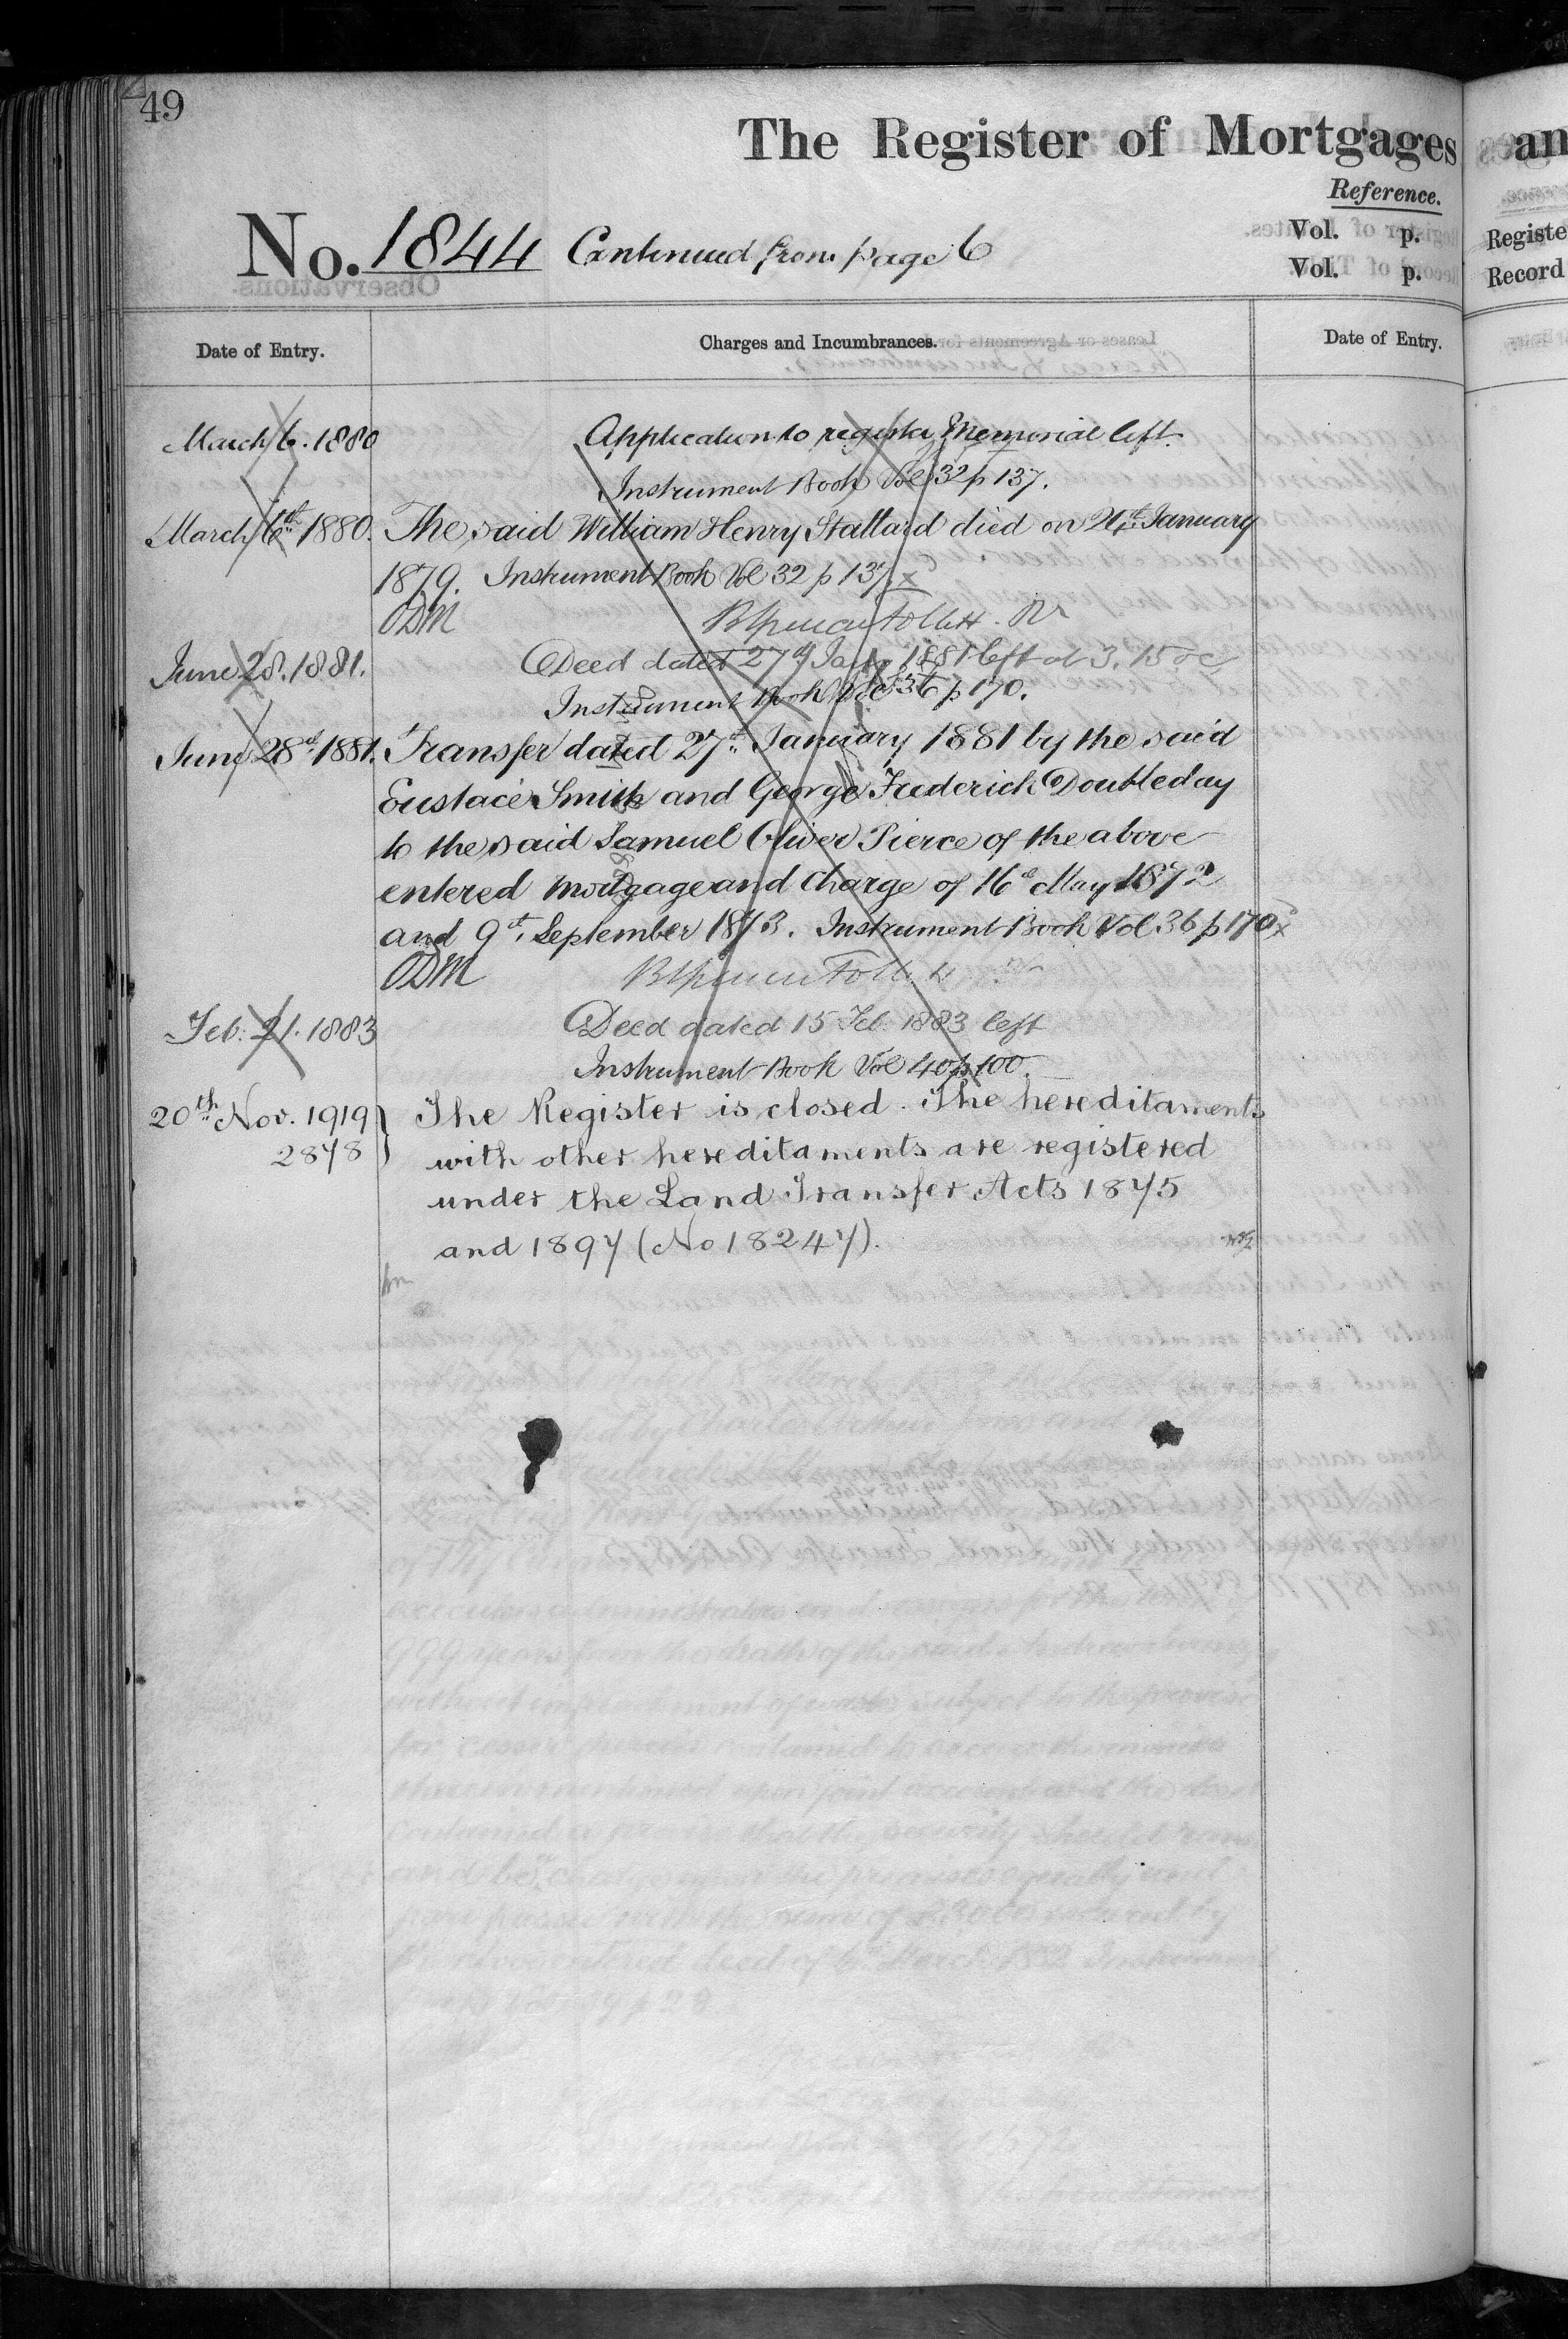 49
The Register of Mortgages an
Reference.
No. 1844 Continued from page 6
Vol. p. Registe
Vol. p. Record
Date of Entry. Charges and Incumbrances. Date of Entry.
March 6. 1880 Application to register Memorial left.
Instrument Book Vol 32 p 137.
March 6th 1880. The said William Henry Stallard died on January
1879. Instrument Book Vol 32 p 137 x
ODM
June 28. 1881. Deed dated 27th Jany 1881 left at 3.15 oc
Instrument Book Vol 36 p 170.
June 28th 1881. Transfer dated 27th January 1881 by the said
Eustace Smith and George Frederick Doubleday
to the said Samuel Oliver Pierce of the above
entered Mortgage and Charge of 16th May 1872
and 9th September 1873. Instrument Book Vol 36 p 170 x
ODM
Feb. 21. 1883 Deed dated 15 Feb. 1883 left
Instrument Book Vol 40 p 100.
20th Nov. 1919 } The Register is closed. The hereditaments
2878 with other hereditaments are registered
under the Land Transfer Acts 1875
and 1897 (No 18247).